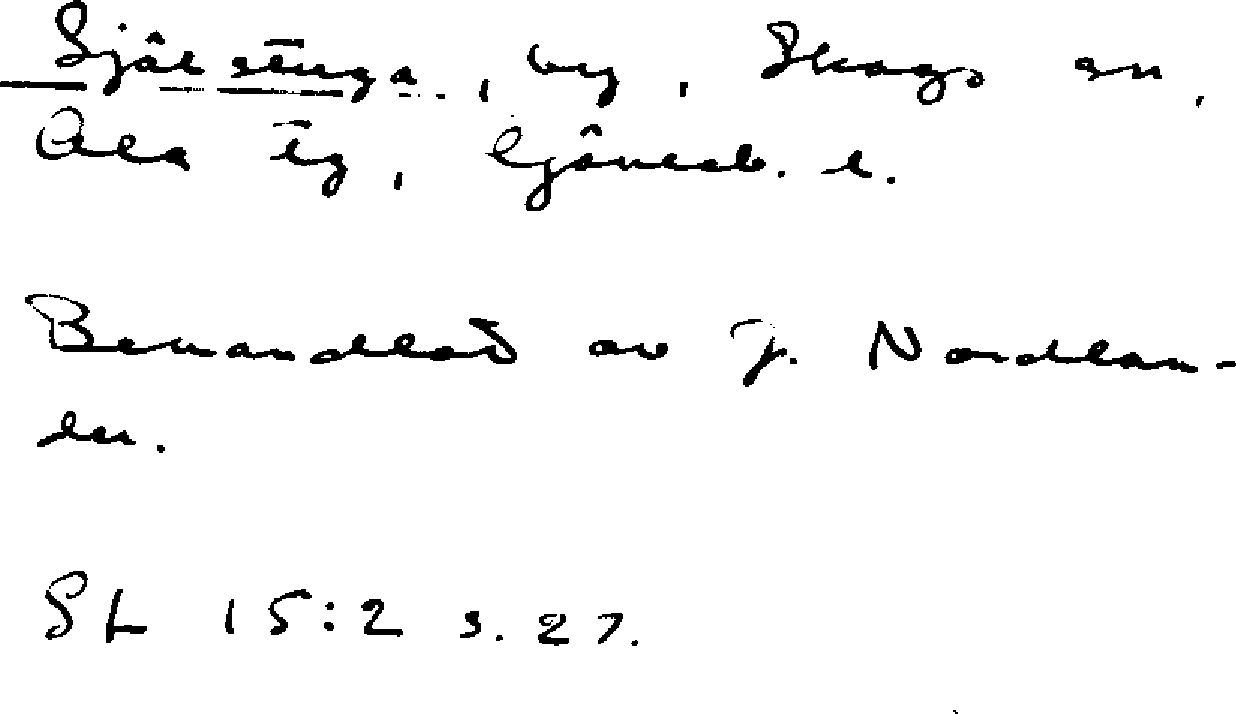 Själstuga, by, Skogs sn,
Ala tg, Gävleb. l.
Behandlad av J. Nordlan-
der.
SL 15:2 s. 27.